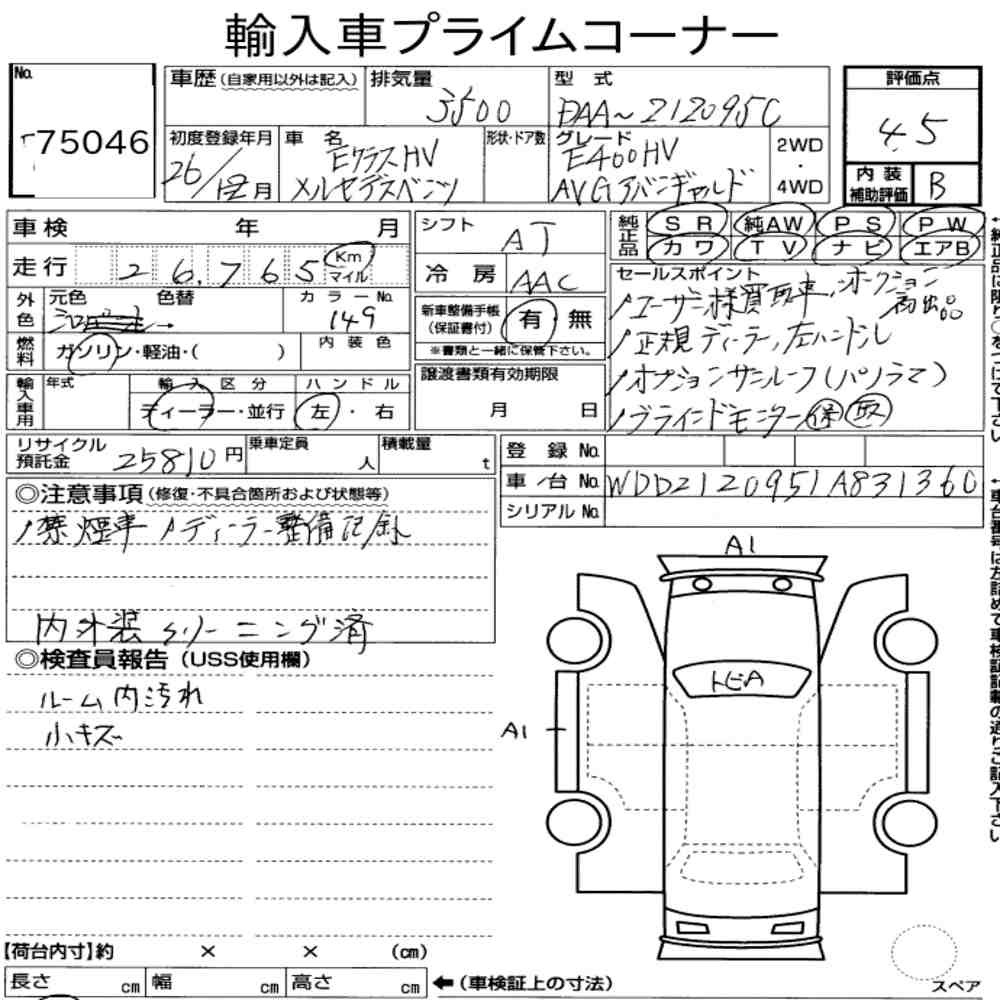 輸入車プライムコーナー
No.
75046
車歴 (自家用以外は記入)
排気量
3500
型式
DAA~212095C
評価点
4.5
初度登録年月
26/12月
車名
EクラスHV
メルセデスベンツ
形状・ドア数
グレード
E400HV
AVGアバンギャルド
2WD
・
4WD
内装
補助評価
B
車検 年 月
走行 26,765 Km
マイル
シフト
AT
冷房
AAC
純正品
SR 純AW PS PW
カワ TV ナビ エアB
外色
元色 色替
シロパール→
カラーNo.
149
燃料
ガソリン・軽油・( )
内装色
新車整備手帳
(保証書付)
有 無
※書類と一緒に保管下さい。
セールスポイント
ノユーザー様買取車、オークション
初出品
ノ正規ディーラー,左ハンドル
ノオプションサンルーフ(パノラマ)
ノブラインドモニター 保 取
輸入車用
年式
輸入区分
ディーラー・並行
ハンドル
左・右
譲渡書類有効期限
月 日
リサイクル
預託金
25810円
乗車定員
人
積載量
t
登録No.
車台No. WDD2120951A831360
シリアルNo.
◎注意事項(修復・不具合箇所および状態等)
ノ禁煙車 ノディーラー整備記録
内外装クリーニング済
◎検査員報告(USS使用欄)
ルーム内汚れ
小キズ
A1
トビA
A1
【荷台内寸】約 × × (cm)
長さ cm 幅 cm 高さ cm
←(車検証上の寸法)
スペア